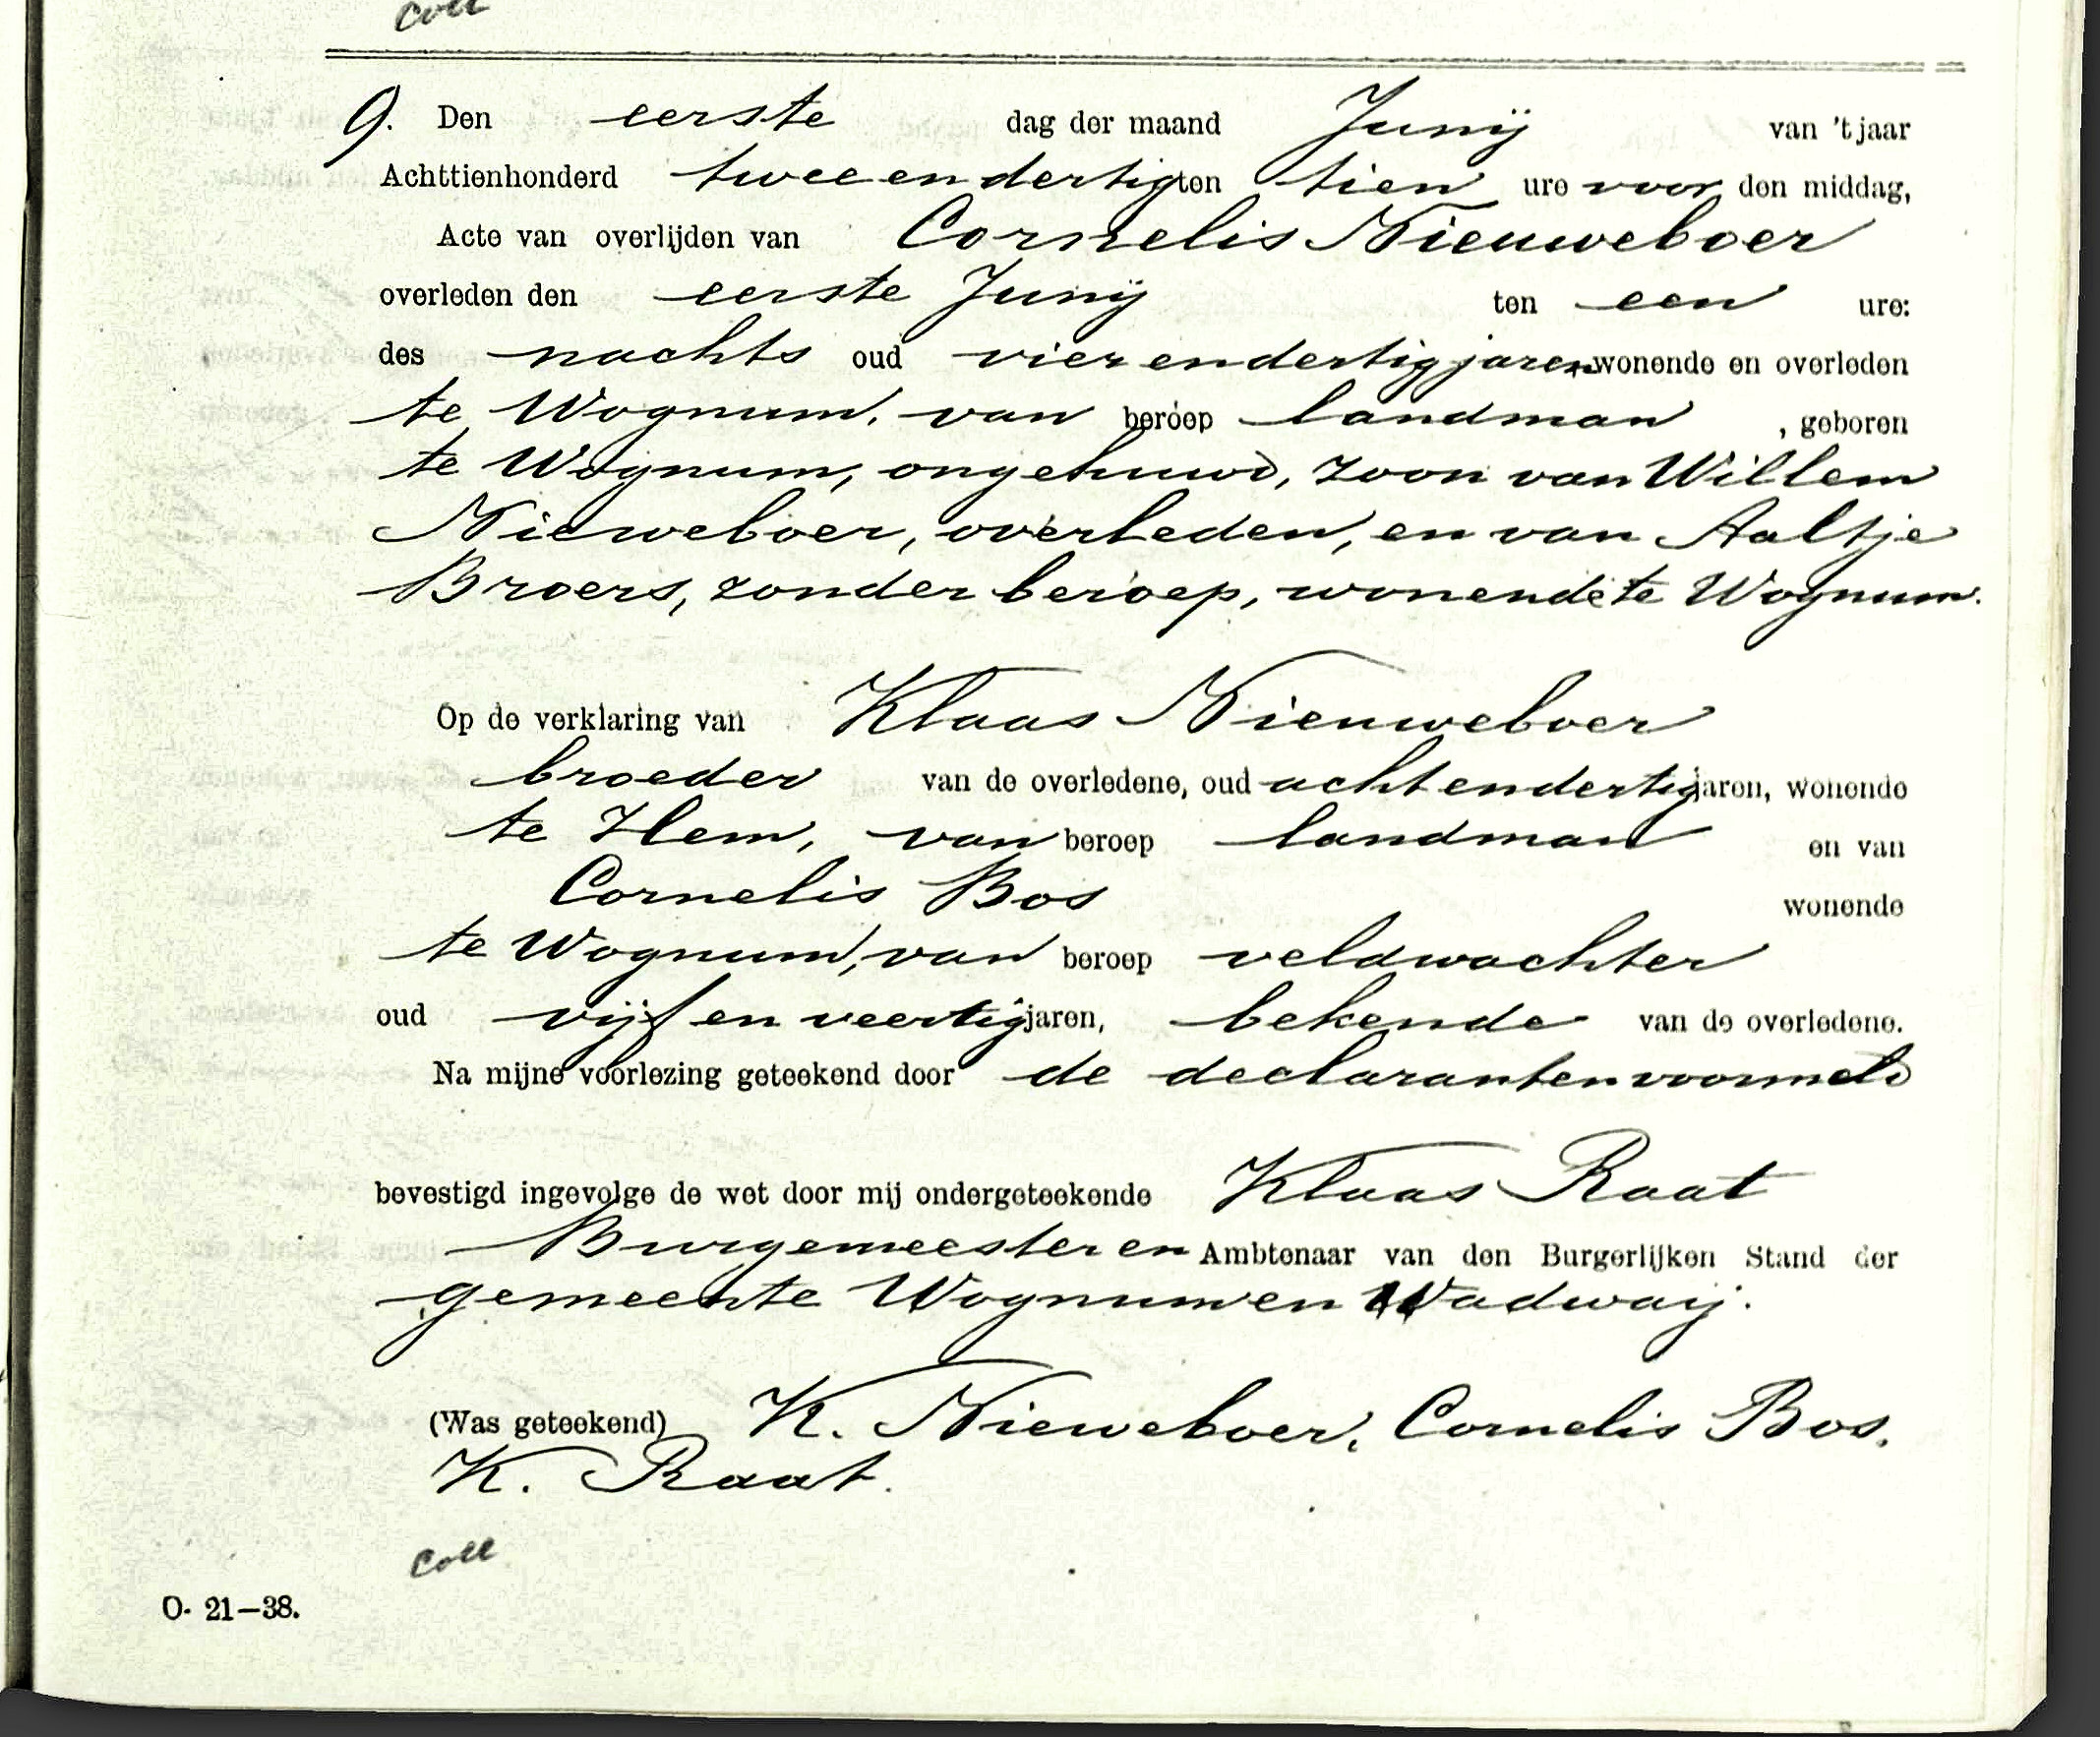 Coll
9. Den eerste dag der maand Junij van 't jaar
Achttienhonderd tweeendertig ten tien ure voor den middag,
Acte van overlijden van Cornelis Nieuweboer
overleden den eerste Junij ten een ure:
des nachts oud vierendertig jaren wonende en overleden
te Wognum, van beroep landman , geboren
te Wognum, ongehuwd, zoon van Willem
Nieweboer, overleden, en van Aaltje
Broers, zonder beroep, wonende te Wognum.
Op de verklaring van Klaas Nieuweboer
broeder van de overledene, oud achtendertig jaren, wonende
te Hem, van beroep landman en van
Cornelis Bos wonende
te Wognum, van beroep veldwachter
oud vijf en veertig jaren, bekende van de overledene.
Na mijne voorlezing geteekend door de declaranten voormeld
bevestigd ingevolge de wet door mij ondergeteekende Klaas Raat
Burgemeester en Ambtenaar van den Burgerlijken Stand der
gemeente Wognum en Wadwaij.
(Was geteekend) K. Nieweboer, Cornelis Bos,
K. Raat.
Coll
O. 21—38.